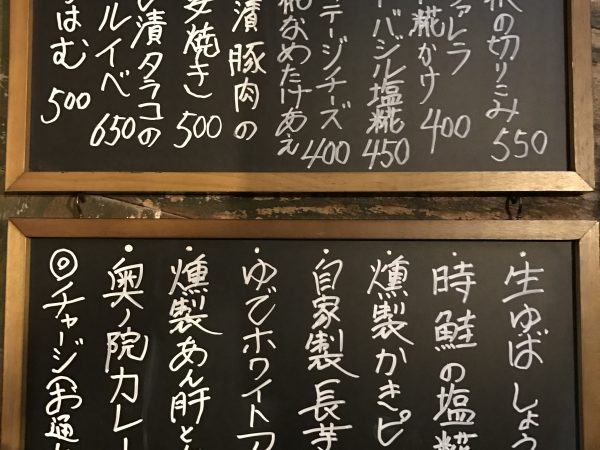 の切りこみ 550
ァレラ
糀かけ 400
バジル塩糀 450
テージチーズ
糀なめたけあえ 400
漬豚肉の
焼き 500
漬タラコの
ルイベ 650
はむ 500
・生ゆばしょう
・時鮭の塩糀
・燻製かきピ
・自家製長芋
・ゆでホワイトア
・燻製あん肝と
・奥ノ院カレー
◎チャージ(お通